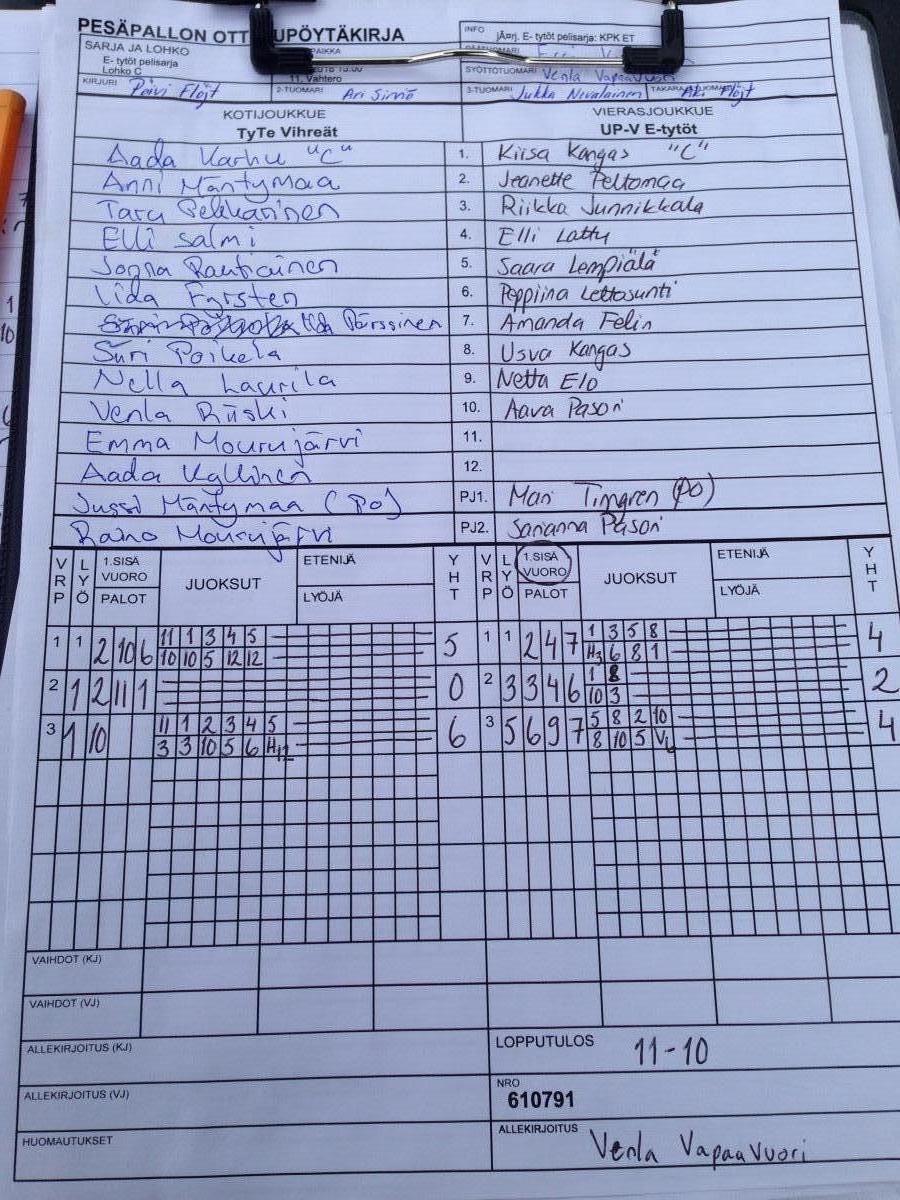 PESÄPALLON OTT UPÖYTÄKIRJA
INFO jÃ¤rj. E- tytöt pelisarja: KPK ET
SARJA JA LOHKO
E- tytöt pelisarja
Lohko C
PAIKKA
11, Vahtero
SYÖTTÖTUOMARI Venla Vapaavuori
KIRJURI Päivi Flöjt 2-TUOMARI Ari Sirviö 3-TUOMARI Jukka Nevalainen Aki Flöjt
KOTIJOUKKUE VIERASJOUKKUE
TyTe Vihreät UP-V E-tytöt
Aada Karhu "C" 1. Kiisa Kangas "C"
Anni Mäntymaa 2. Jeanette Peltomaa
Taru Pekkarinen 3. Riikka Junnikkala
Elli Salmi 4. Elli Latty
Joona Rautiainen 5. Saara Lempiälä
Iida Fyrsten 6. Peppiina Lettosunti
Pärssinen 7. Amanda Felin
Suri Poikela 8. Usva Kangas
Nella Laurila 9. Netta Elo
Venla Riiski 10. Aava Pasori
Emma Mourujärvi 11.
Aada Kallinen 12.
Jussi Mäntymaa (Po) PJ1. Mari Timgren (PO)
Raino Mourujärvi PJ2. Sarianna Pasori
VRP LYÖ 1.SISÄ VUORO PALOT JUOKSUT ETENIJÄ LYÖJÄ YHT VRP LYÖ 1.SISÄ VUORO PALOT JUOKSUT ETENIJÄ LYÖJÄ YHT
1 1 2 10 6 11 1 3 4 5 5 1 1 2 4 7 1 3 5 8 4
10 10 5 12 12 H3 6 8 1
2 1 2 11 1 0 2 3 3 4 6 1 8 2
10 3
3 1 10 11 1 2 3 4 5 6 3 5 6 9 7 5 8 2 10 4
3 3 10 5 6 H12 8 10 5 V6
VAIHDOT (KJ)
VAIHDOT (VJ)
ALLEKIRJOITUS (KJ) LOPPUTULOS 11-10
ALLEKIRJOITUS (VJ) NRO 610791
HUOMAUTUKSET ALLEKIRJOITUS Venla Vapaavuori